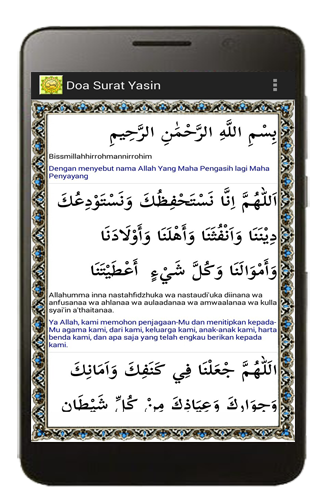 Doa Surat Yasin
بِسْمِ اللَّهِ الرَّحْمَٰنِ الرَّحِيمِ
Bissmillahhirrohmannirrohim
Dengan menyebut nama Allah Yang Maha Pengasih lagi Maha
Penyayang
اَللَّهُمَّ اِنَّا نَسْتَحْفِظُكَ وَنَسْتَوْدِعُكَ
دِيْنَنَا وَاَنْفُثَنَا وَأَهْلَنَا وَأَوْلَادَنَا
وَأَمْوَالَنَا وَكُلَّ شَيْءٍ أَعْطَيْتَنَا
Allahumma inna nastahfidzhuka wa nastaudi'uka diinana wa
anfusanaa wa ahlanaa wa aulaadanaa wa amwaalanaa wa kulla
syai'in a'thaitanaa.
Ya Allah, kami memohon penjagaan-Mu dan menitipkan kepada-
Mu agama kami, dari kami, keluarga kami, anak-anak kami, harta
benda kami, dan apa saja yang telah engkau berikan kepada
kami.
اَللَّهُمَّ جْعَلْنَا فِي كَنَفِكَ وَاَمَانِكَ
وَجِوَارِكَ وَعِيَاذِكَ مِنْ كُلِّ شَيْطَانٍ